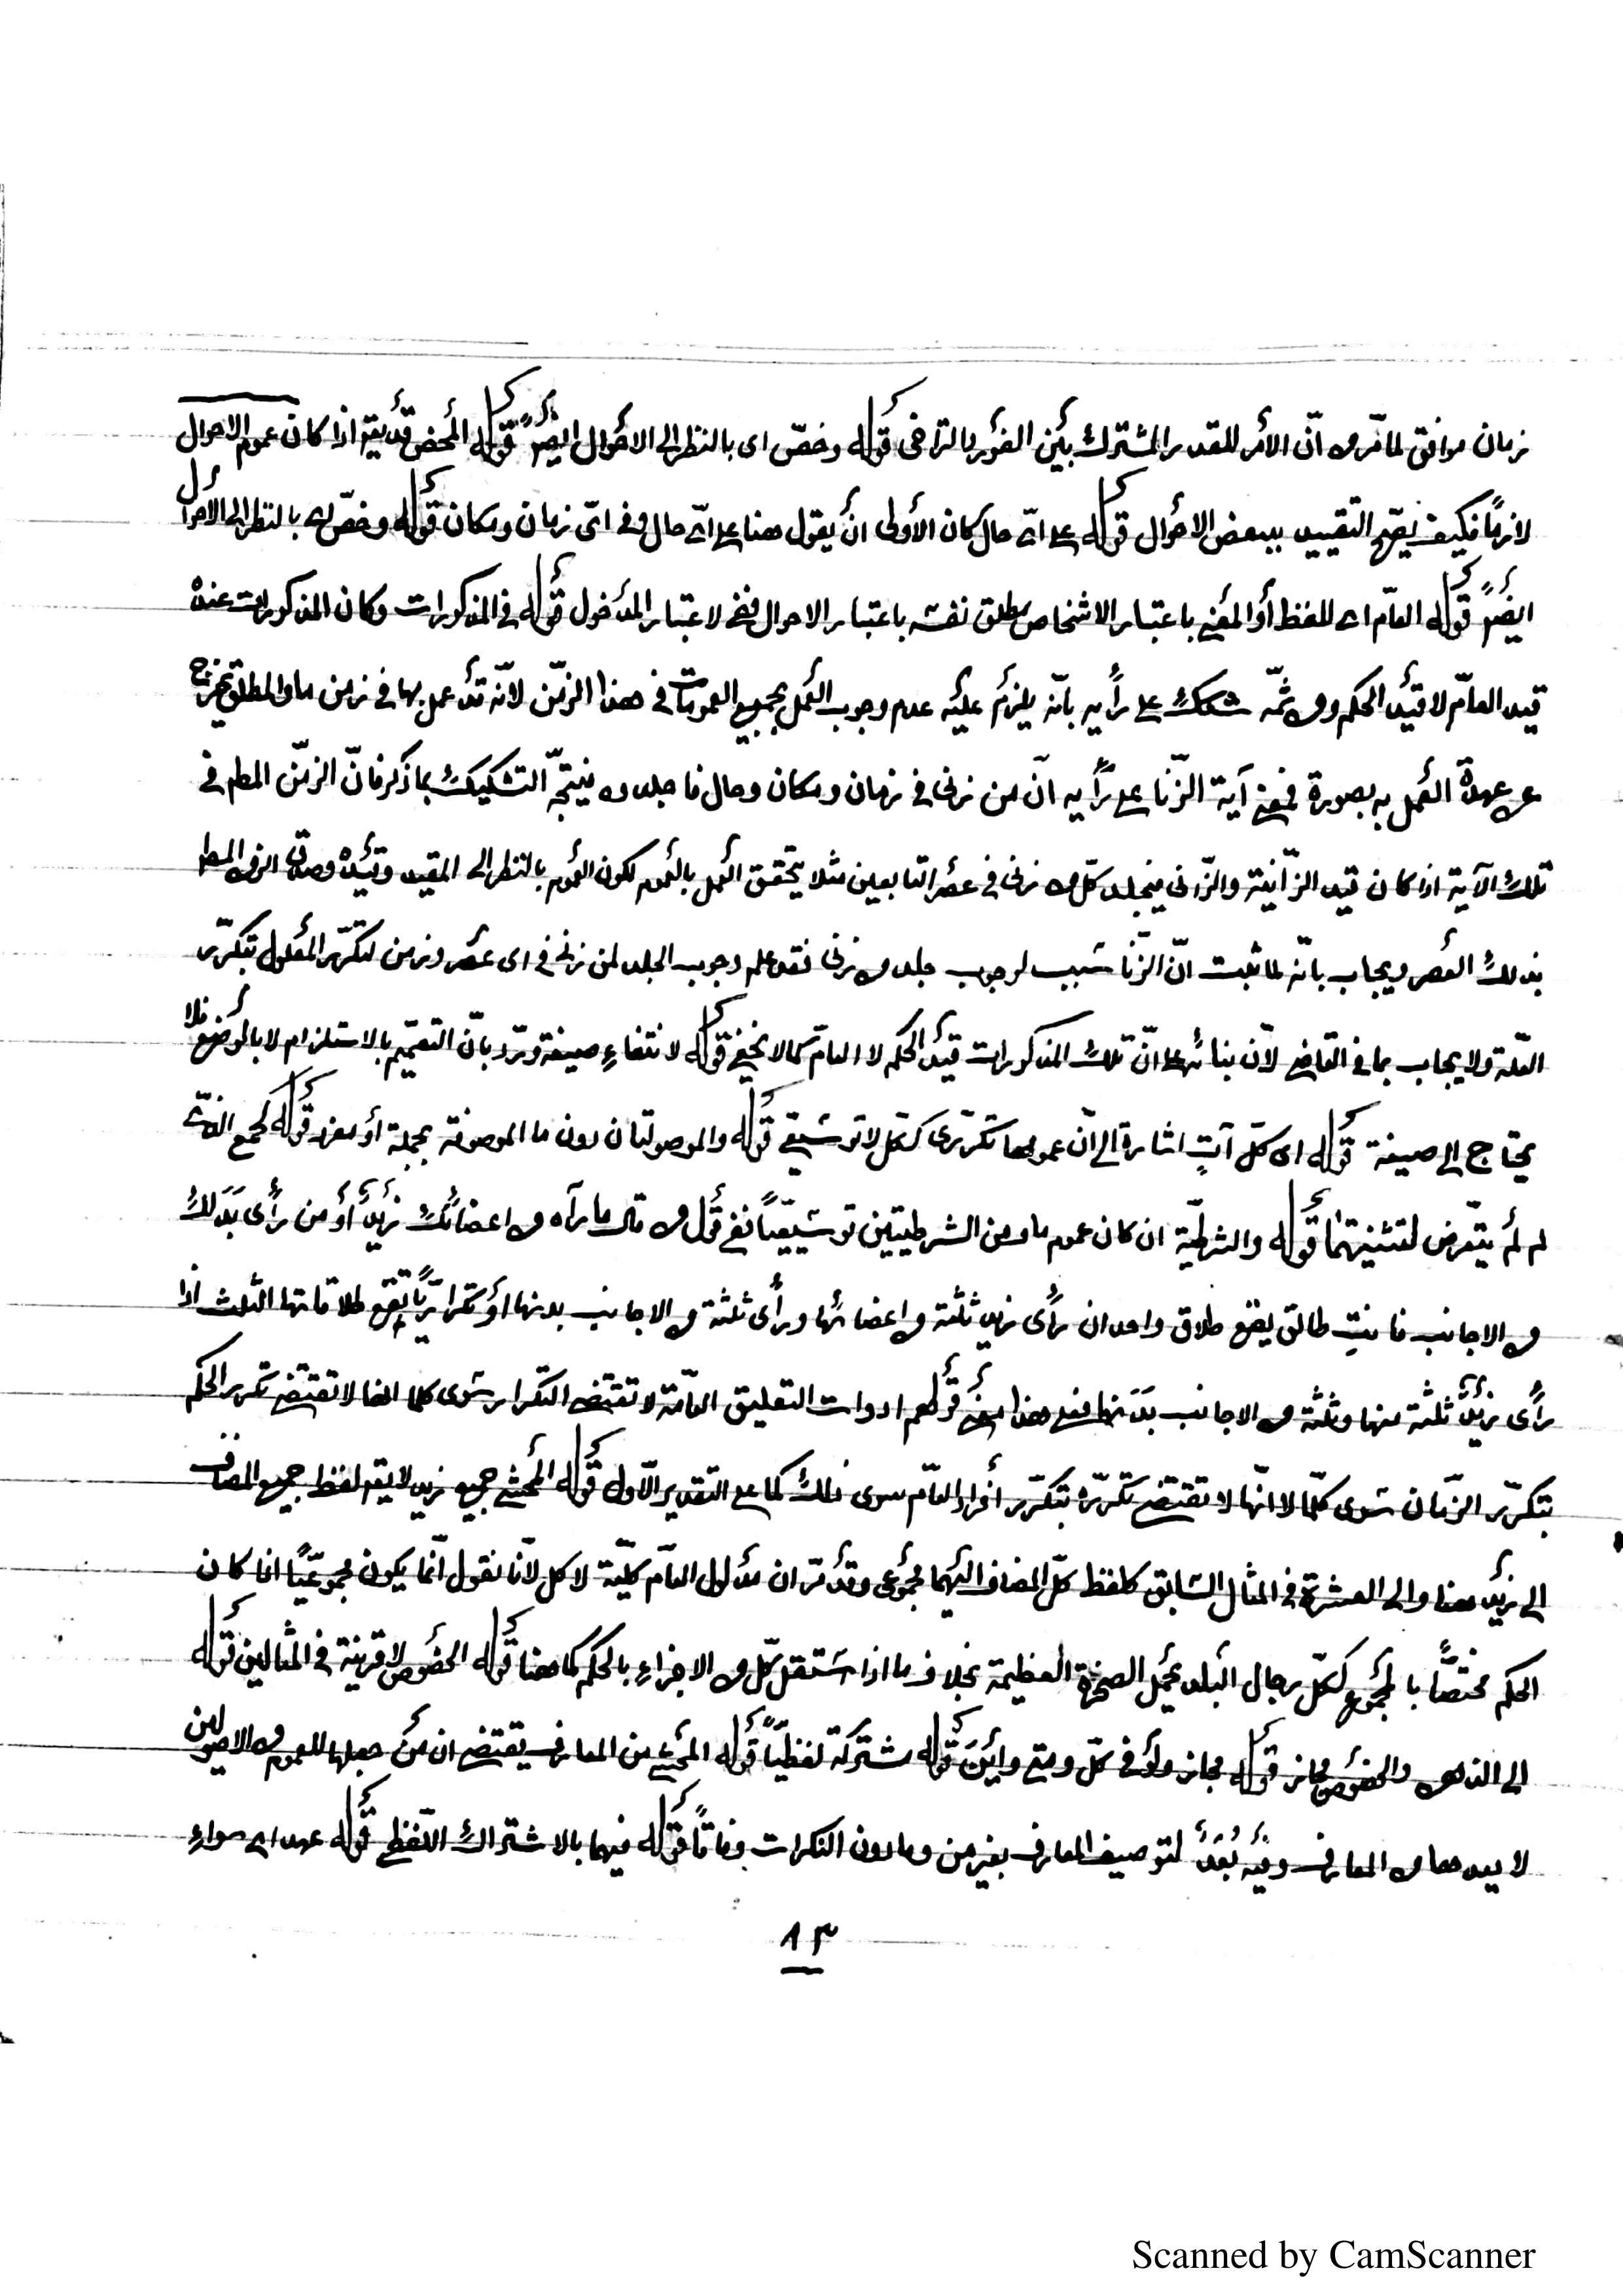 زمان موافق لما مّر من انّ الأمر للقدر المشترك بين الفور والتراخى قوله وخصّ اى بالنظر الى الاحوال ايضًا قوله المحض قد يقع اذا كان عموم الاحوال
لازمًا فكيف يصّح التقييد ببعض الاحوال قوله على اىّ حال كان الأولى أن يقول هنا على اىّ حال وفى اىّ زمان ومكان قوله وخصّ اى بالنظر الى الاحوال
ايضًا قوله العامّ اى للفظ أو المعنى باعتبار الاشخاص مطلق نفسه باعتبار الاحوال لا عتبار المدخول قوله فى المذكورات وكان المذكورات عنده
قيد العامّ لا قيد الحكم ومن ثمّه شكك على رأيه بانّه يلزم عليه عدم وجوب العمل بجميع العمومات فى هذا الزمن لانّه قد عمل بها فى زمن ما والمطلق يخرج
عن عهدة العمل به بصورة فمعنى آية الزّنا على رأيه انّ من زنى فى زمان ومكان وحال فاجلدوه فيتجّه التشكيك بما ذكر فانّ الزمن المطلق فى
تلك الآية اذا كان قيد الزّانية والزّانى فيجلد كلّ من زنى فى عصر التابعين مثلا يتحقق العمل بالعموم لكون العموم بالنظر الى المقيد وقيده وصدق الزمن المطلق
بذلك العصر ويجاب بانّه لما ثبت انّ الزّنا سبب لوجوب جلد من زنى فقد علم وجوب الجلد لمن زنى فى اى عصر وزمن لتكرّر المعلول بتكرّر
العلّة ولا يجاب بما فى القاضى لانّ بنائه على انّ تلك المذكورات قيد الحكم لا العامّ كما لا يخفى قوله لا نتفاء صيغة وردّ بانّ التعميم بالاستلزام لا بالوضع فلا
يحتاج الى صيغة قوله اى كلّ آتٍ اشارة الى انّ عمومها تكرّرى ككلّ لا توسّعى قوله والموصولتان دون ما الموصوفة بجملة أو مفرد قوله كجمع الذى
لم لم يتعرض لتثنيتهما قوله والشرطيّة ان كان عموم ما ومن الشرطيتين توسّعيّا ففى قول من قال ما رآه من اعضائك زيد أو من رأى بدنك
من الاجانب فانتِ طالق يقع طلاق واحد ان رأى زيد ثلثة من اعضائها ورأى ثلثة من الاجانب بدنها أو تكراريّا يقع طلاقاتها الثلث اذا
رأى زيد ثلثة منها وثلثة من الاجانب بدنها فعلى هذا معنى قولهم ادوات التعليق العامّة لا تقتضى التكرار سوى كلما انها لا تقتضى تكرر الحكم
بتكرّر الزمان سوى كلّما لا انّها لا تقتضى تكرّره بتكرّر أفراد العامّ سوى ذلك كما على التقدير الأول قوله المحشى جميع زيد لا يقع لفظ جميع المضاف
الى زيد هنا والى العشرة فى المثال السابق كلفظ كلّ المضاف اليهما مجموعى وقد مّر ان مدلول العامّ كليّة لا كل لانّا نقول انّما يكون مجموعيًا اذا كان
الحكم مختصًّا بالمجموع ككلّ رجال البلد يحمل الصخرة العظيمة بخلاف ما اذا استقل كلّ من الاجزاء بالحكم كما هنا قوله الخصوص لا قرينة فى المثالين قوله
الى الذهن والخصوص مجاز قوله مجاز ولو فى كلّ ومتى وأين قوله مشتركة لفظيّاً قوله المحشى من المعارف يقتضى ان من جعلها للعموم من الاصولين
لا يعدها من المعارف وفيه بُعدٌ لتوصيف المعارف بغير من وما دون النكرات وفاقًا قوله فيهما بالاشتراك اللفظى قوله عهد اى سواء
٨٣
Scanned by CamScanner